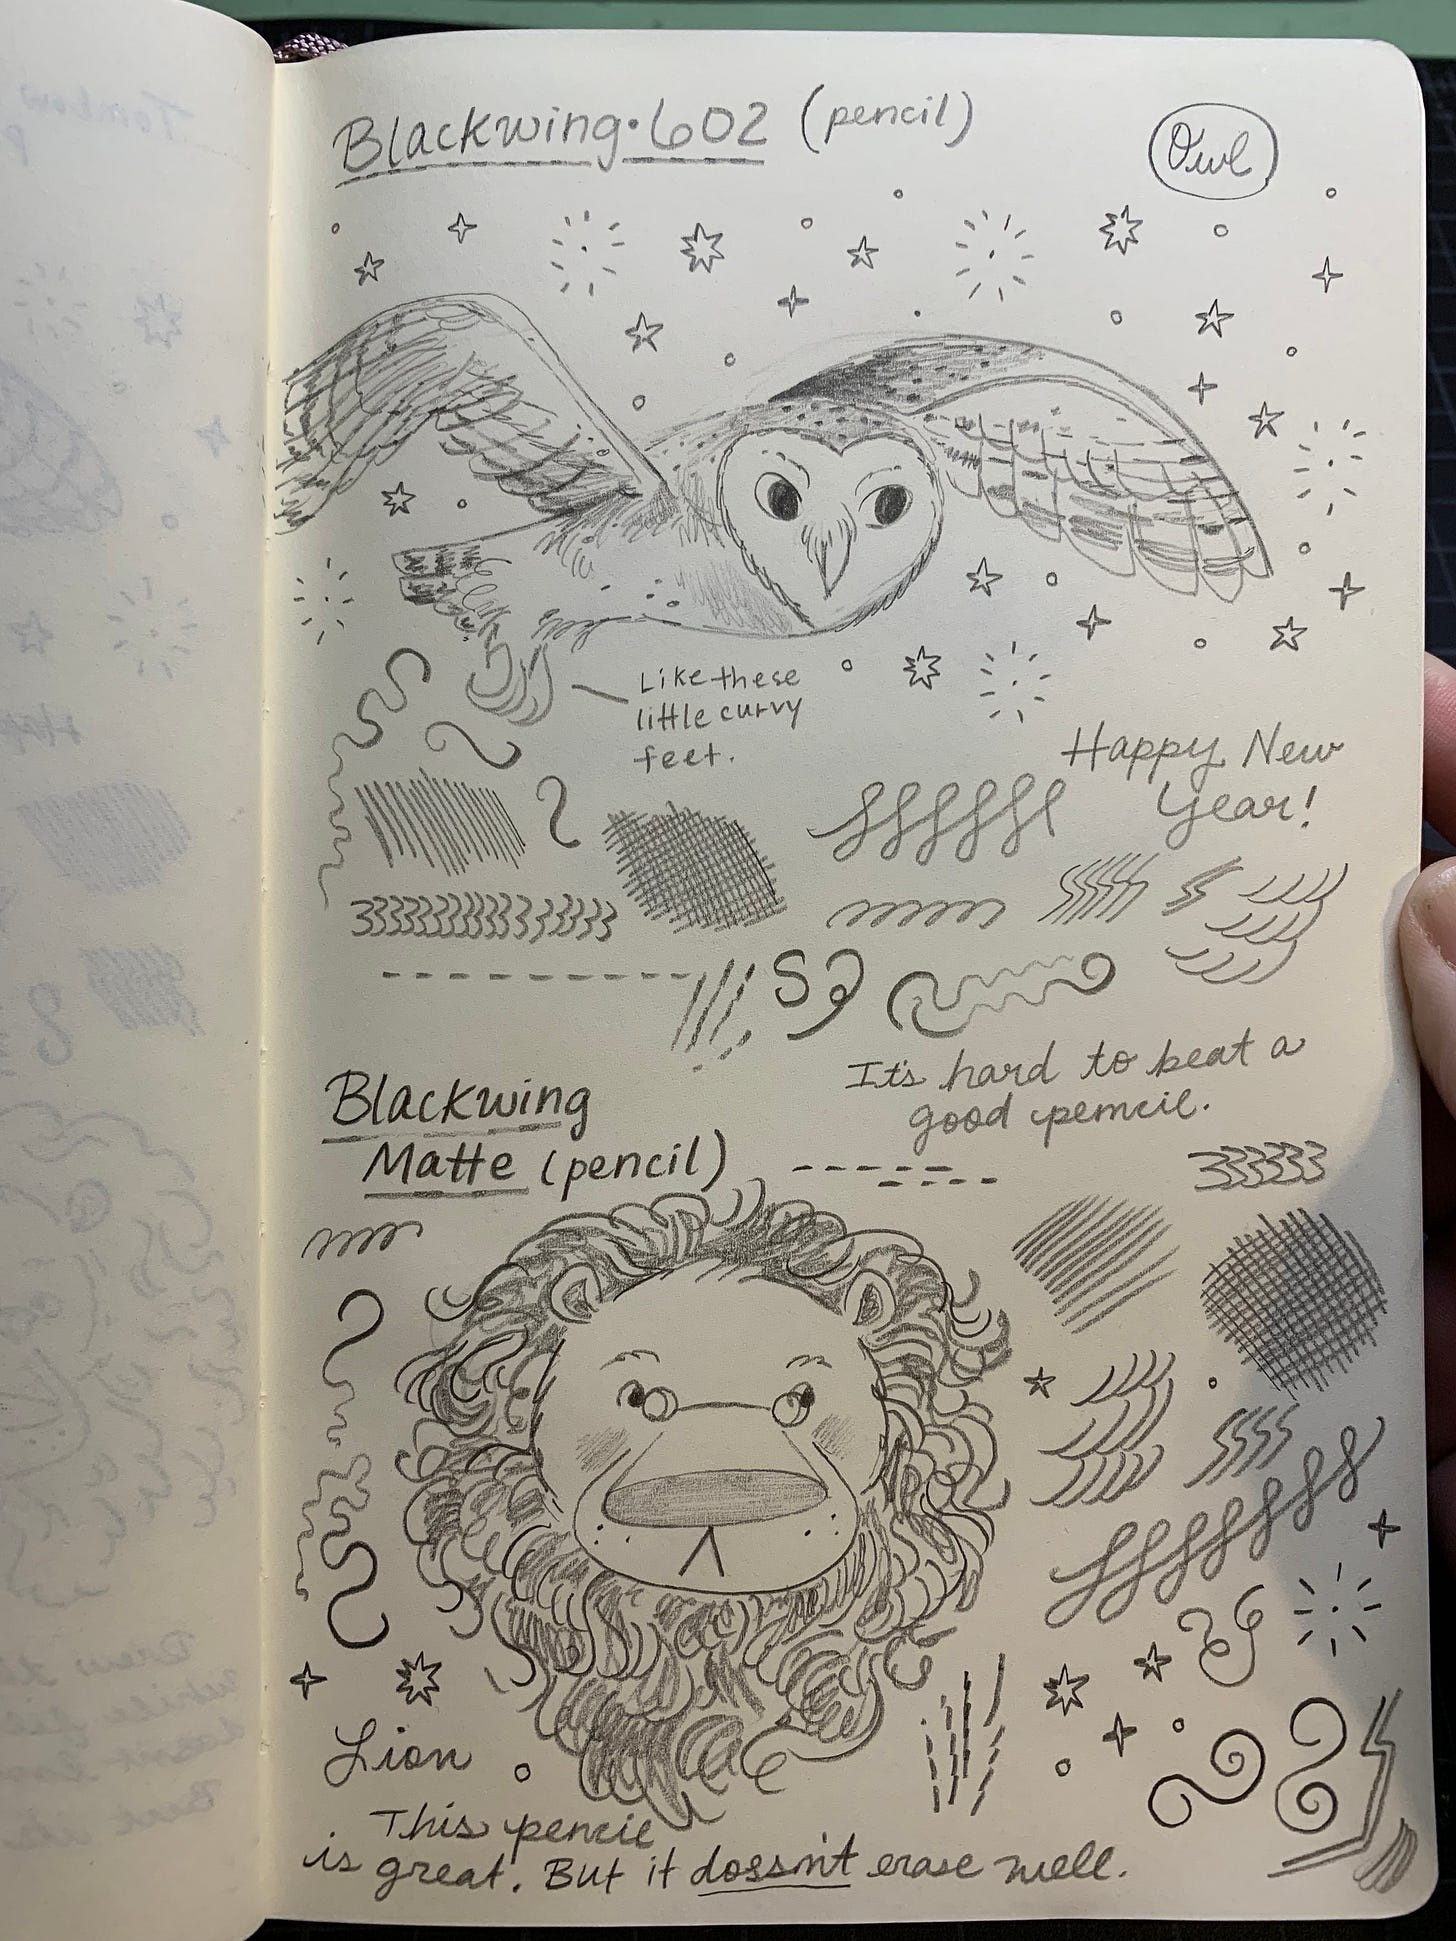 Blackwing • 602 (pencil)
Owl
Like these
little curvy
feet.
Happy New
Year!
It's hard to beat a
good pencil.
Blackwing
Matte (pencil)
Lion
This pencil
is great. But it doesn't erase well.